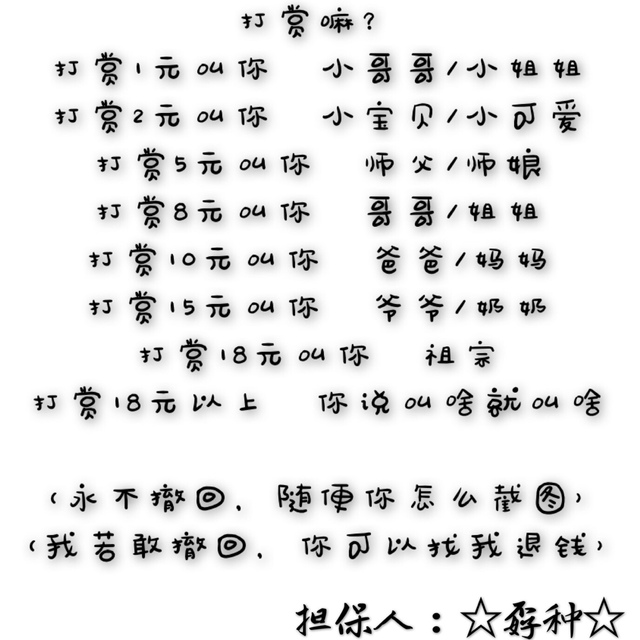 打赏嘛?
打赏1元叫你 小哥哥/小姐姐
打赏2元叫你 小宝贝/小可爱
打赏5元叫你 师父/师娘
打赏8元叫你 哥哥/姐姐
打赏10元叫你 爸爸/妈妈
打赏15元叫你 爷爷/奶奶
打赏18元叫你 祖宗
打赏18元以上 你说叫啥就叫啥
(永不撤回,随便你怎么截图)
(我若敢撤回,你可以找我退钱)
担保人:☆孬种☆